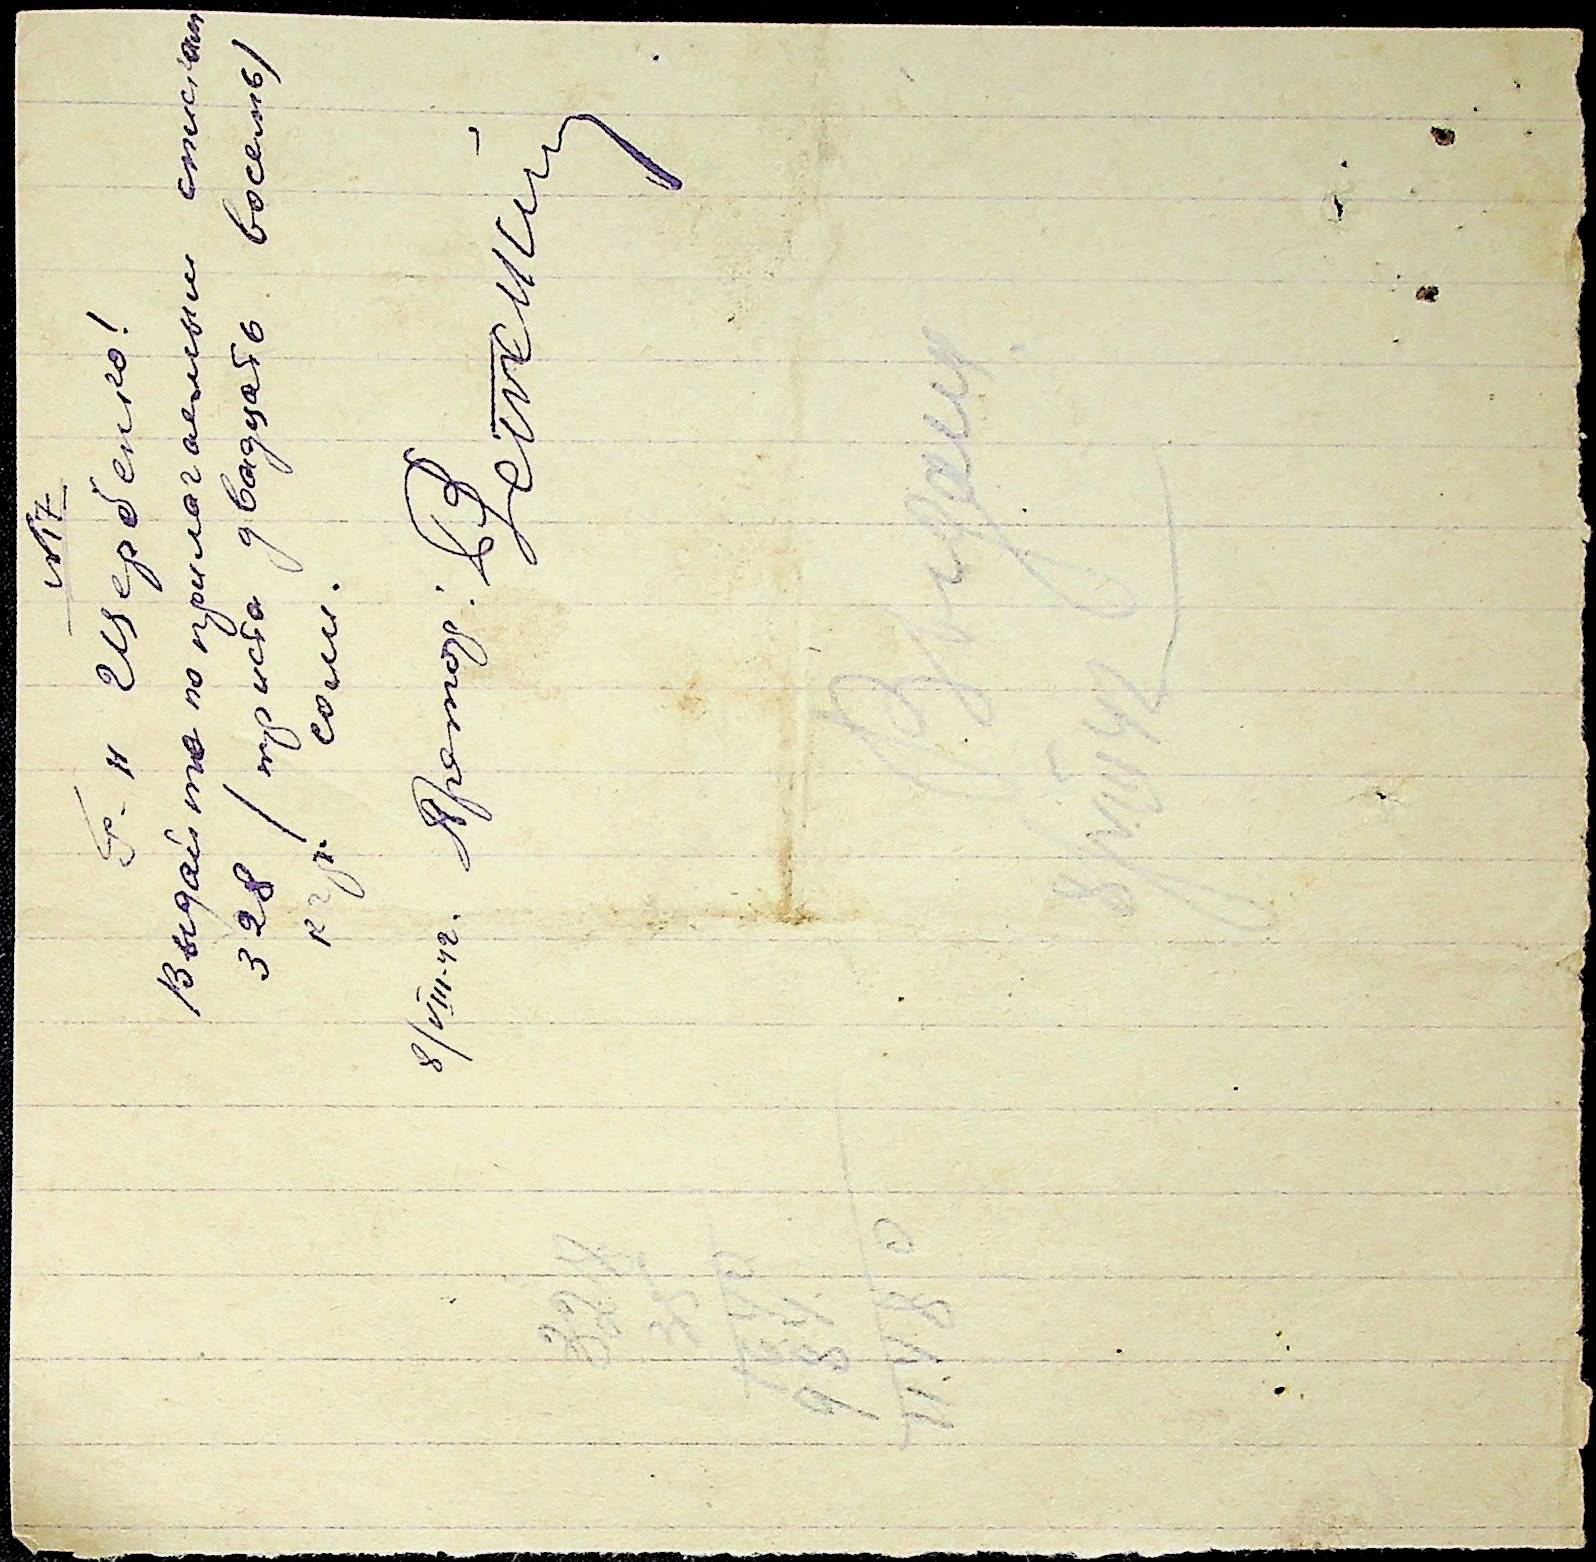 №17
Гр-н Щербенко!
Выдайте по прилагаемым спискам
328 /триста двадцать восемь/
кгр. соли.
8/VIII-42.
Выдали
8/VIII 42
328